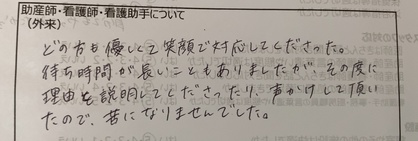 助産師・看護師・看護助手について
(外来)
どの方も優しくて笑顔で対応してくださった。
待ち時間が長いこともありましたが、その度に
理由を説明してくださったり、声かけして頂い
たので、苦になりませんでした。